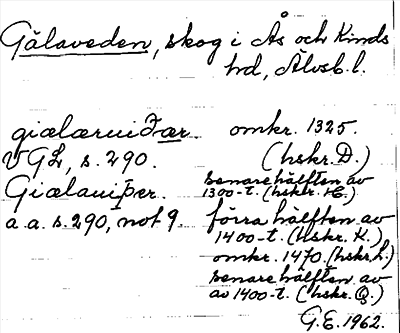 Gälaveden, skog i Ås och Kinds
hd, Älvsb. l.
giælæruiðær omkr. 1325.
VGL, s. 290. (hskr. D.)
Giælauiþer. senare hälften av
1300-t. (hskr. H.)
a.a. s. 290, not 9. förra hälften av
1400-t. (hskr. K.)
omkr. 1470. (hskr. L.)
senare hälften av
av 1400-t. (hskr. Q.)
G.E. 1962.